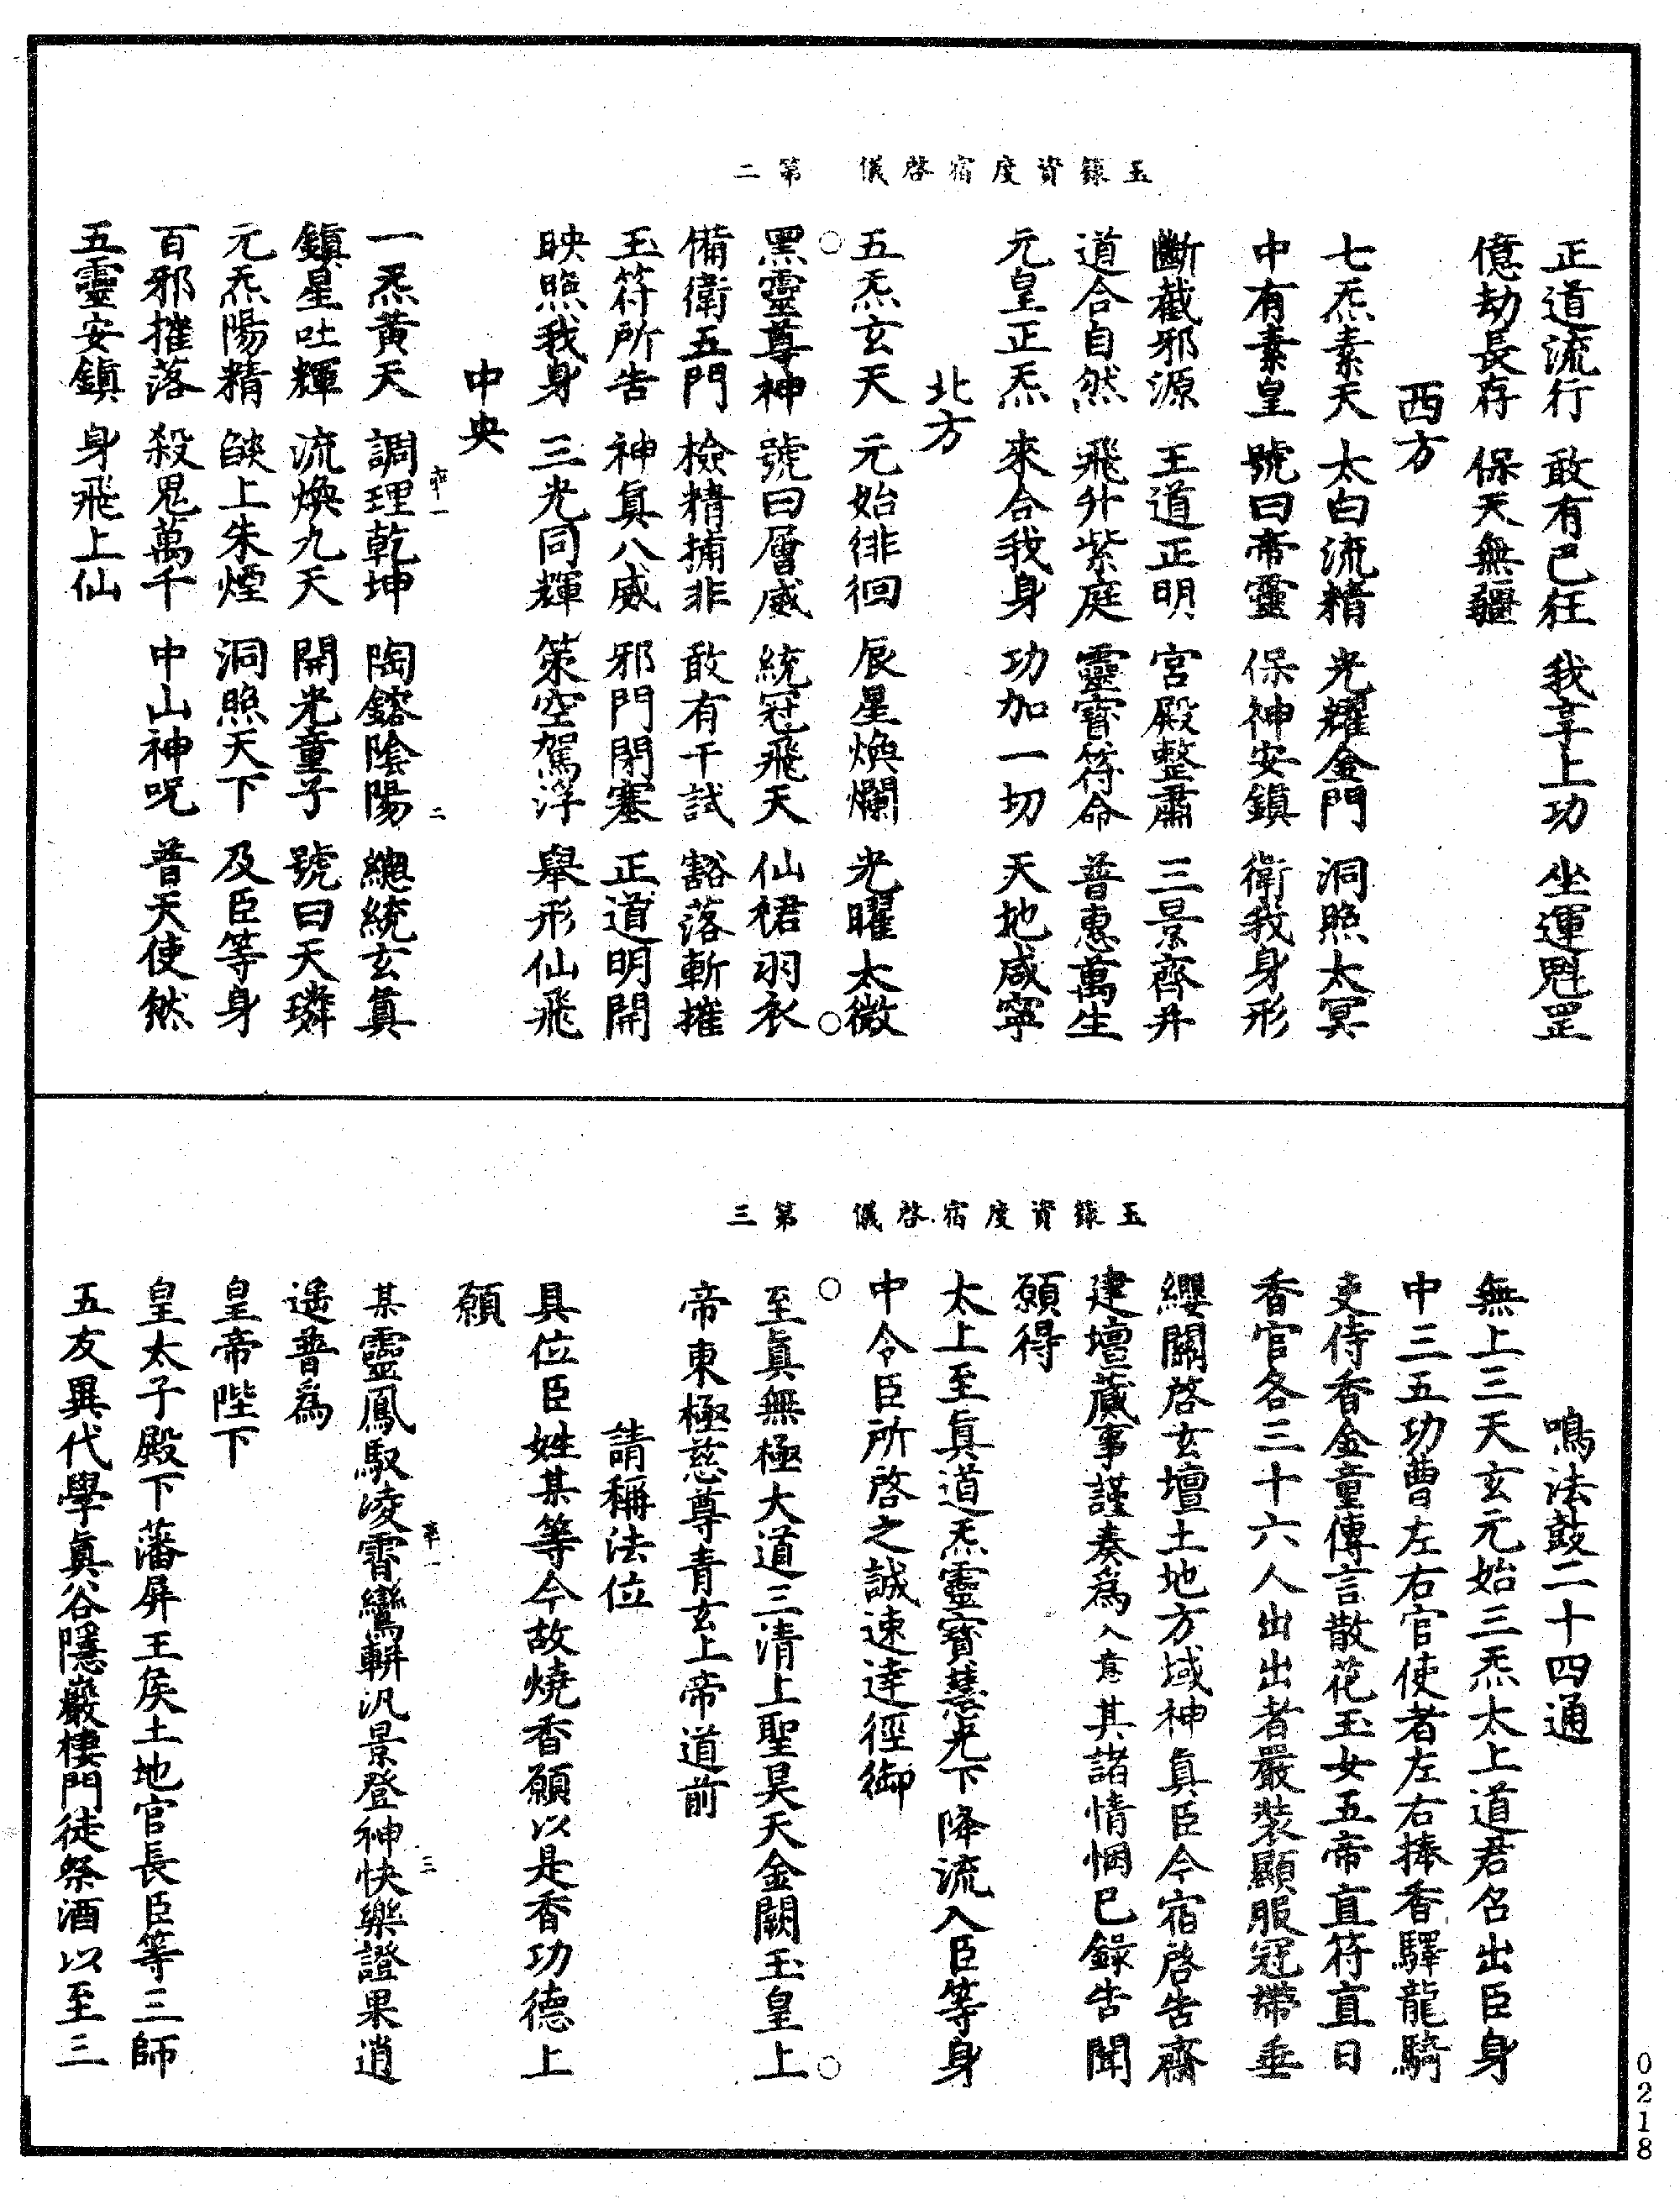 玉籙資度宿啓儀　第二
正道流行　敢有巳狂　我享上功　坐運魁罡
億劫長存　保天無疆
西方
七炁素天　太白流精　光耀金門　洞照太冥
中有素皇　號曰帝靈　保神安鎮　衛我身形
斷截邪源　王道正明　宮殿整肅　三景齊并
道合自然　飛升紫庭　靈寶符命　普惠萬生
元皇正炁　來合我身　功加一切　天地咸寧
北方
五炁玄天　元始徘徊　辰星煥爛　光曜太微
黑靈尊神　號曰層威　統冠飛天　仙裙羽衣
備衛五門　檢精捕非　敢有干試　豁落斬摧
玉符所告　神真八威　邪門閉塞　正道明開
映照我身　三光同輝　策空駕浮　舉形仙飛
中央
一炁黃天　調理乾坤　陶鎔陰陽　總統玄真
二
鎮星吐輝　流煥九天　開光童子　號曰天璘
元炁陽精　燄上朱煙　洞照天下　及臣等身
百邪摧落　殺鬼萬千　中山神呪　普天使然
五靈安鎮　身飛上仙
玉籙資度宿啓儀　第三
鳴法鼓二十四通
無上三天玄元始三炁太上道君召出臣身
中三五功曹左右官使者左右捧香驛龍騎
吏侍香金童傳言散花玉女五帝直符直日
香官各三十六人出出者嚴裝顯服冠帶垂
纓關啓玄壇土地方域神真臣今宿啓告齋
建壇蕆事謹奏爲入意其諸情悃已錄告聞
願得
太上至真道炁靈寶慧光下降流入臣等身
中令臣所啓之誠速達徑御
至真無極大道三清上聖昊天金闕玉皇上
帝東極慈尊青玄上帝道前
請稱法位
具位臣姓某等今故燒香願以是香功德上
願
某靈鳳馭凌霄鸞軿汎景登神快樂證果逍
三
遥普爲
皇帝陛下
皇太子殿下藩屏王侯土地官長臣等三師
五友異代學真谷隱巖棲門徒祭酒以至三
0218